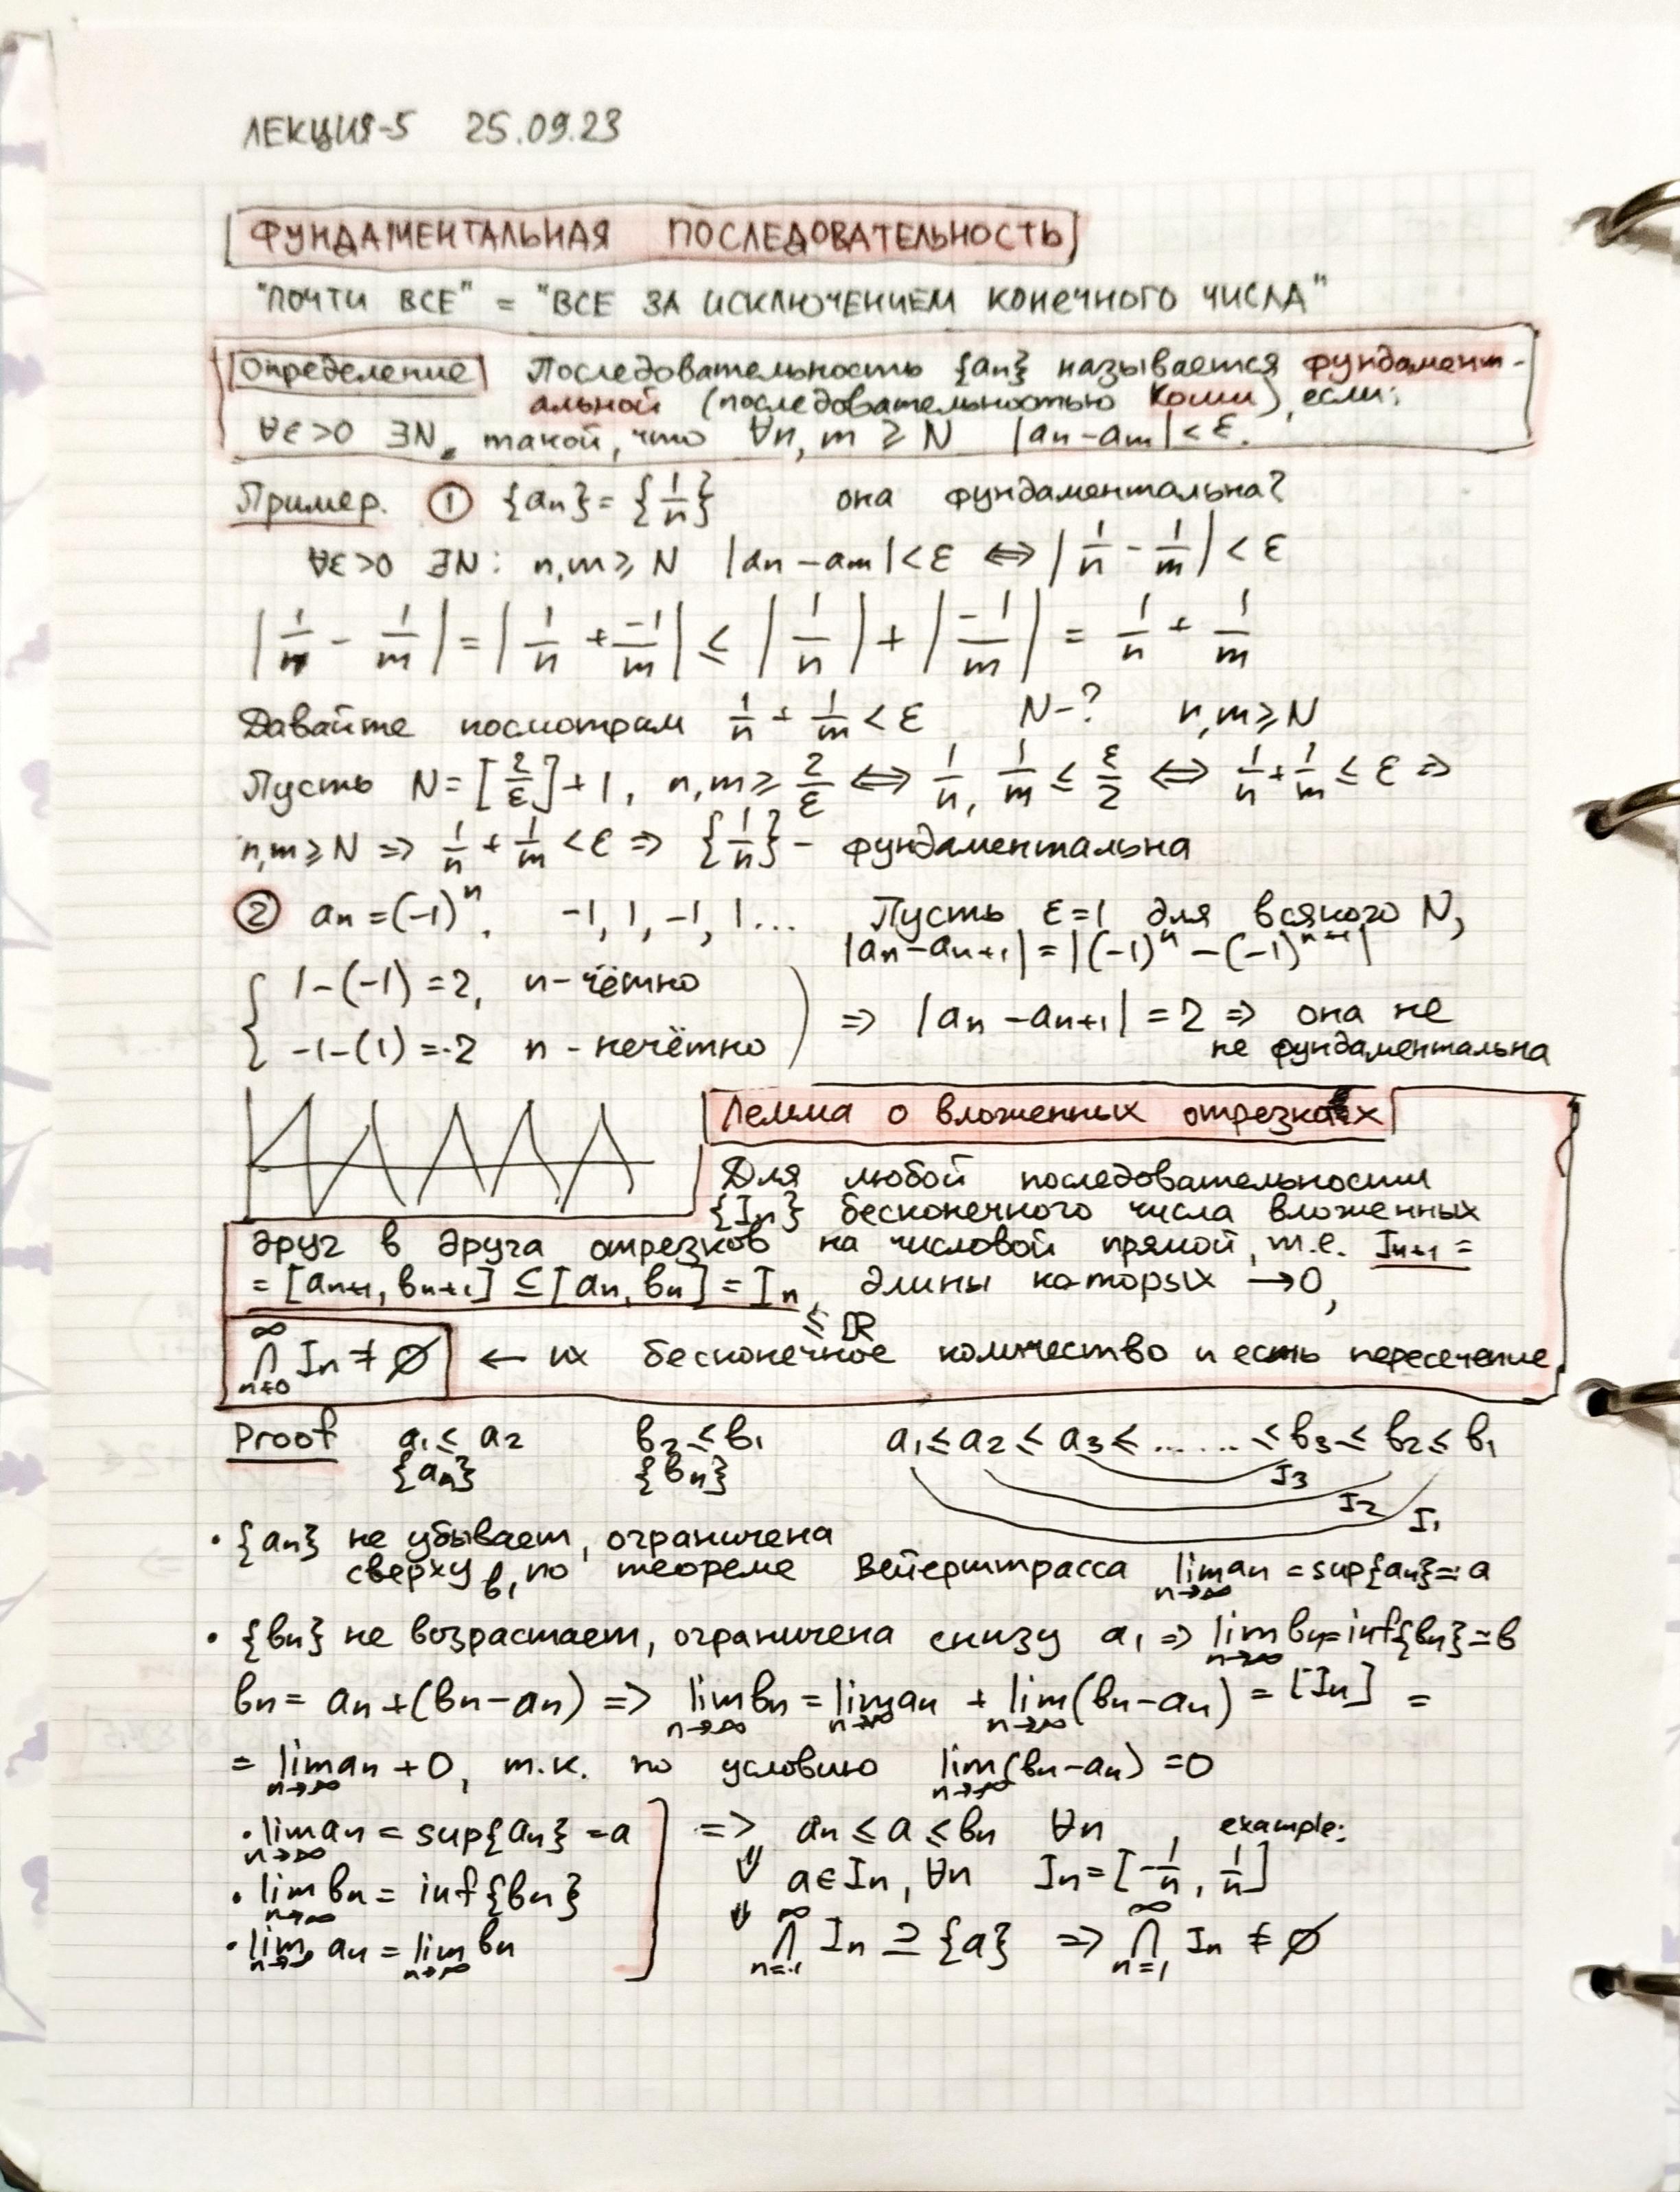 ЛЕКЦИЯ-5 25.09.23
ФУНДАМЕНТАЛЬНАЯ ПОСЛЕДОВАТЕЛЬНОСТЬ
"ПОЧТИ ВСЕ" = "ВСЕ ЗА ИСКЛЮЧЕНИЕМ КОНЕЧНОГО ЧИСЛА"
Определение Последовательность {aₙ} называется фундамент-
альной (последовательностью Коши), если:
∀ε>0 ∃N, такой, что ∀n, m ≥ N |aₙ-aₘ|<ε.
Пример. ① {aₙ} = {1/n} она фундаментальна?
∀ε>0 ∃N: n,m ≥ N |aₙ-aₘ|<ε ⇔ |1/n - 1/m| < ε
|1/n - 1/m| = |1/n + -1/m| ≤ |1/n| + |-1/m| = 1/n + 1/m
Давайте посмотрим 1/n + 1/m < ε N-? n,m ≥ N
Пусть N = [2/ε] + 1, n,m ≥ 2/ε ⇔ 1/n, 1/m ≤ ε/2 ⇔ 1/n + 1/m ≤ ε ⇒
n,m ≥ N ⇒ 1/n + 1/m < ε ⇒ {1/n} - фундаментальна
② aₙ = (-1)ⁿ, -1, 1, -1, 1... Пусть ε=1 для всякого N,
|aₙ-aₙ₊₁| = |(-1)ⁿ - (-1)ⁿ⁺¹|
1-(-1) = 2, n-чётно
-1-(1) = -2 n - нечётно
⇒ |aₙ - aₙ₊₁| = 2 ⇒ она не
не фундаментальна
Лемма о вложенных отрезках
Для любой последовательности
{Iₙ} бесконечного числа вложенных
друг в друга отрезков на числовой прямой, т.е. Iₙ₊₁ =
= [aₙ₊₁, bₙ₊₁] ⊆ [aₙ, bₙ] = Iₙ, длины которых → 0,
≤ ℝ
∞⋂n=0 Iₙ ≠ ∅ ← их бесконечное количество и есть пересечение
Proof a₁ ≤ a₂ b₂ ≤ b₁ a₁ ≤ a₂ ≤ a₃ ≤ ...... ≤ b₃ ≤ b₂ ≤ b₁
{aₙ} {bₙ} I₃
I₂ I₁
• {aₙ} не убывает, ограничена
сверху b₁, по теореме Вейерштрасса lim n→∞ aₙ = sup{aₙ} = a
• {bₙ} не возрастает, ограничена снизу a₁ ⇒ lim n→∞ bₙ = inf{bₙ} = b
bₙ = aₙ + (bₙ-aₙ) ⇒ lim n→∞ bₙ = lim n→∞ aₙ + lim n→∞ (bₙ-aₙ) = [Iₙ] =
= lim n→∞ aₙ + 0, т.к. по условию lim n→∞ (bₙ-aₙ) = 0
• lim n→∞ aₙ = sup{aₙ} = a ⇒ aₙ ≤ a ≤ bₙ ∀n , example:
⇓ a ∈ Iₙ, ∀n Iₙ = [-1/n, 1/n]
• lim n→∞ bₙ = inf{bₙ}
• lim n→∞ aₙ = lim n→∞ bₙ ⇓ ∞⋂n=1 Iₙ ⊇ {a} ⇒ ∞⋂n=1 Iₙ ≠ ∅